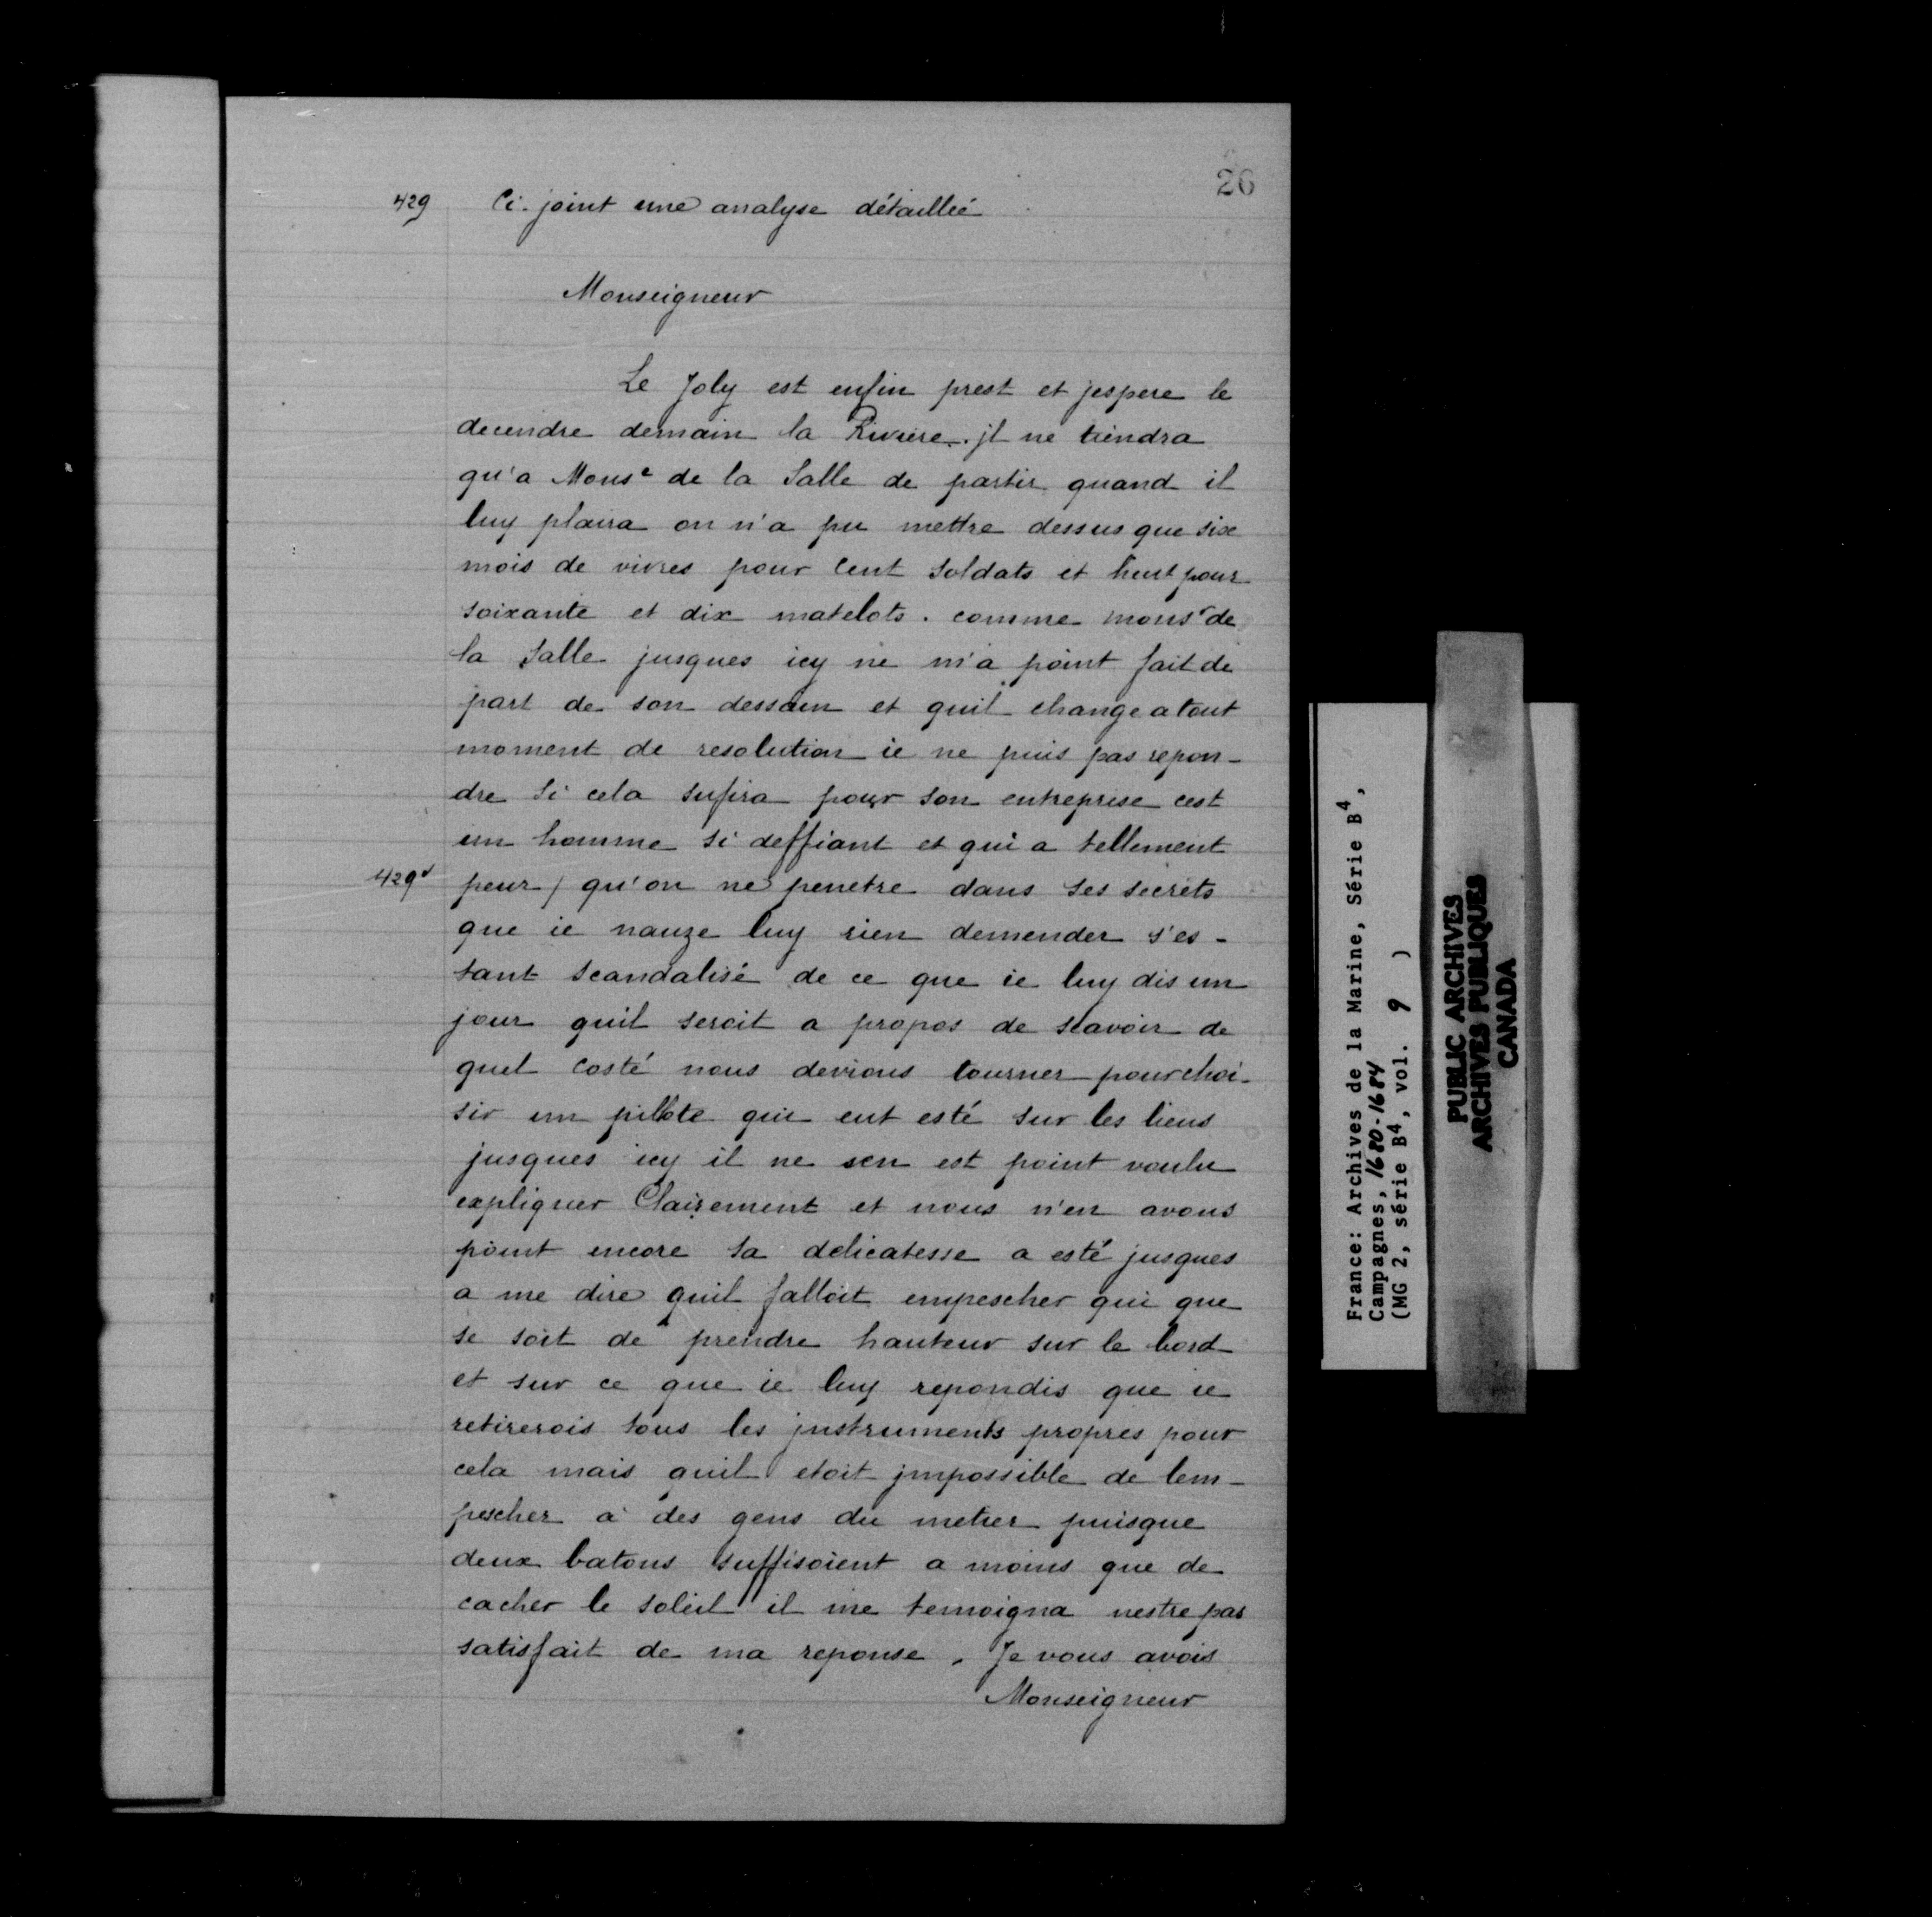 26
429 Ci-joint une analyse détaillée
Monseigneur
Le Joly est enfin prest et jespere le
decendre demain la Riviere. jl ne tiendra
qu'a Mons.r de la Salle de partir quand il
luy plaira on n'a pu mettre dessus que six
mois de vivres pour Cent soldats et huit pour
soixante et dix matelots. comme mons.r de
la Salle jusques icy ne m'a point fait de
part de son dessein et quil change a tout
moment de resolution ie ne puis pas repon-
dre si cela sufira pour son entreprise cest
un homme si deffiant et qui a tellement
429v peur / qu'on ne penetre dans ses secrets
que ie nauze luy rien demender s'es-
tant scandalisé de ce que ie luy dis un
jour quil seroit a propos de scavoir de
quel costé nous devions tourner pour choi-
sir un pillote qui eut esté sur les lieus
jusques icy il ne sen est point voulu
expliquer Clairement et nous n'en avons
point encore sa delicatesse a esté jusques
a me dire quil falloit empescher qui que
se soit de prendre hauteur sur le bord
et sur ce que ie luy repondis que ie
retirerois tous les jnstruments propres pour
cela mais quil etoit jmpossible de lem-
pescher à des gens du metier puisque
deux batons suffisoient a moins que de
cacher le soleil il me temoigna nestre pas
satisfait de ma reponse. Je vous avois
Monseigneur
France: Archives de la Marine, Série B4,
Campagnes, 1680-1684
(MG 2, série B4, vol. 9 )
PUBLIC ARCHIVES
ARCHIVES PUBLIQUES
CANADA